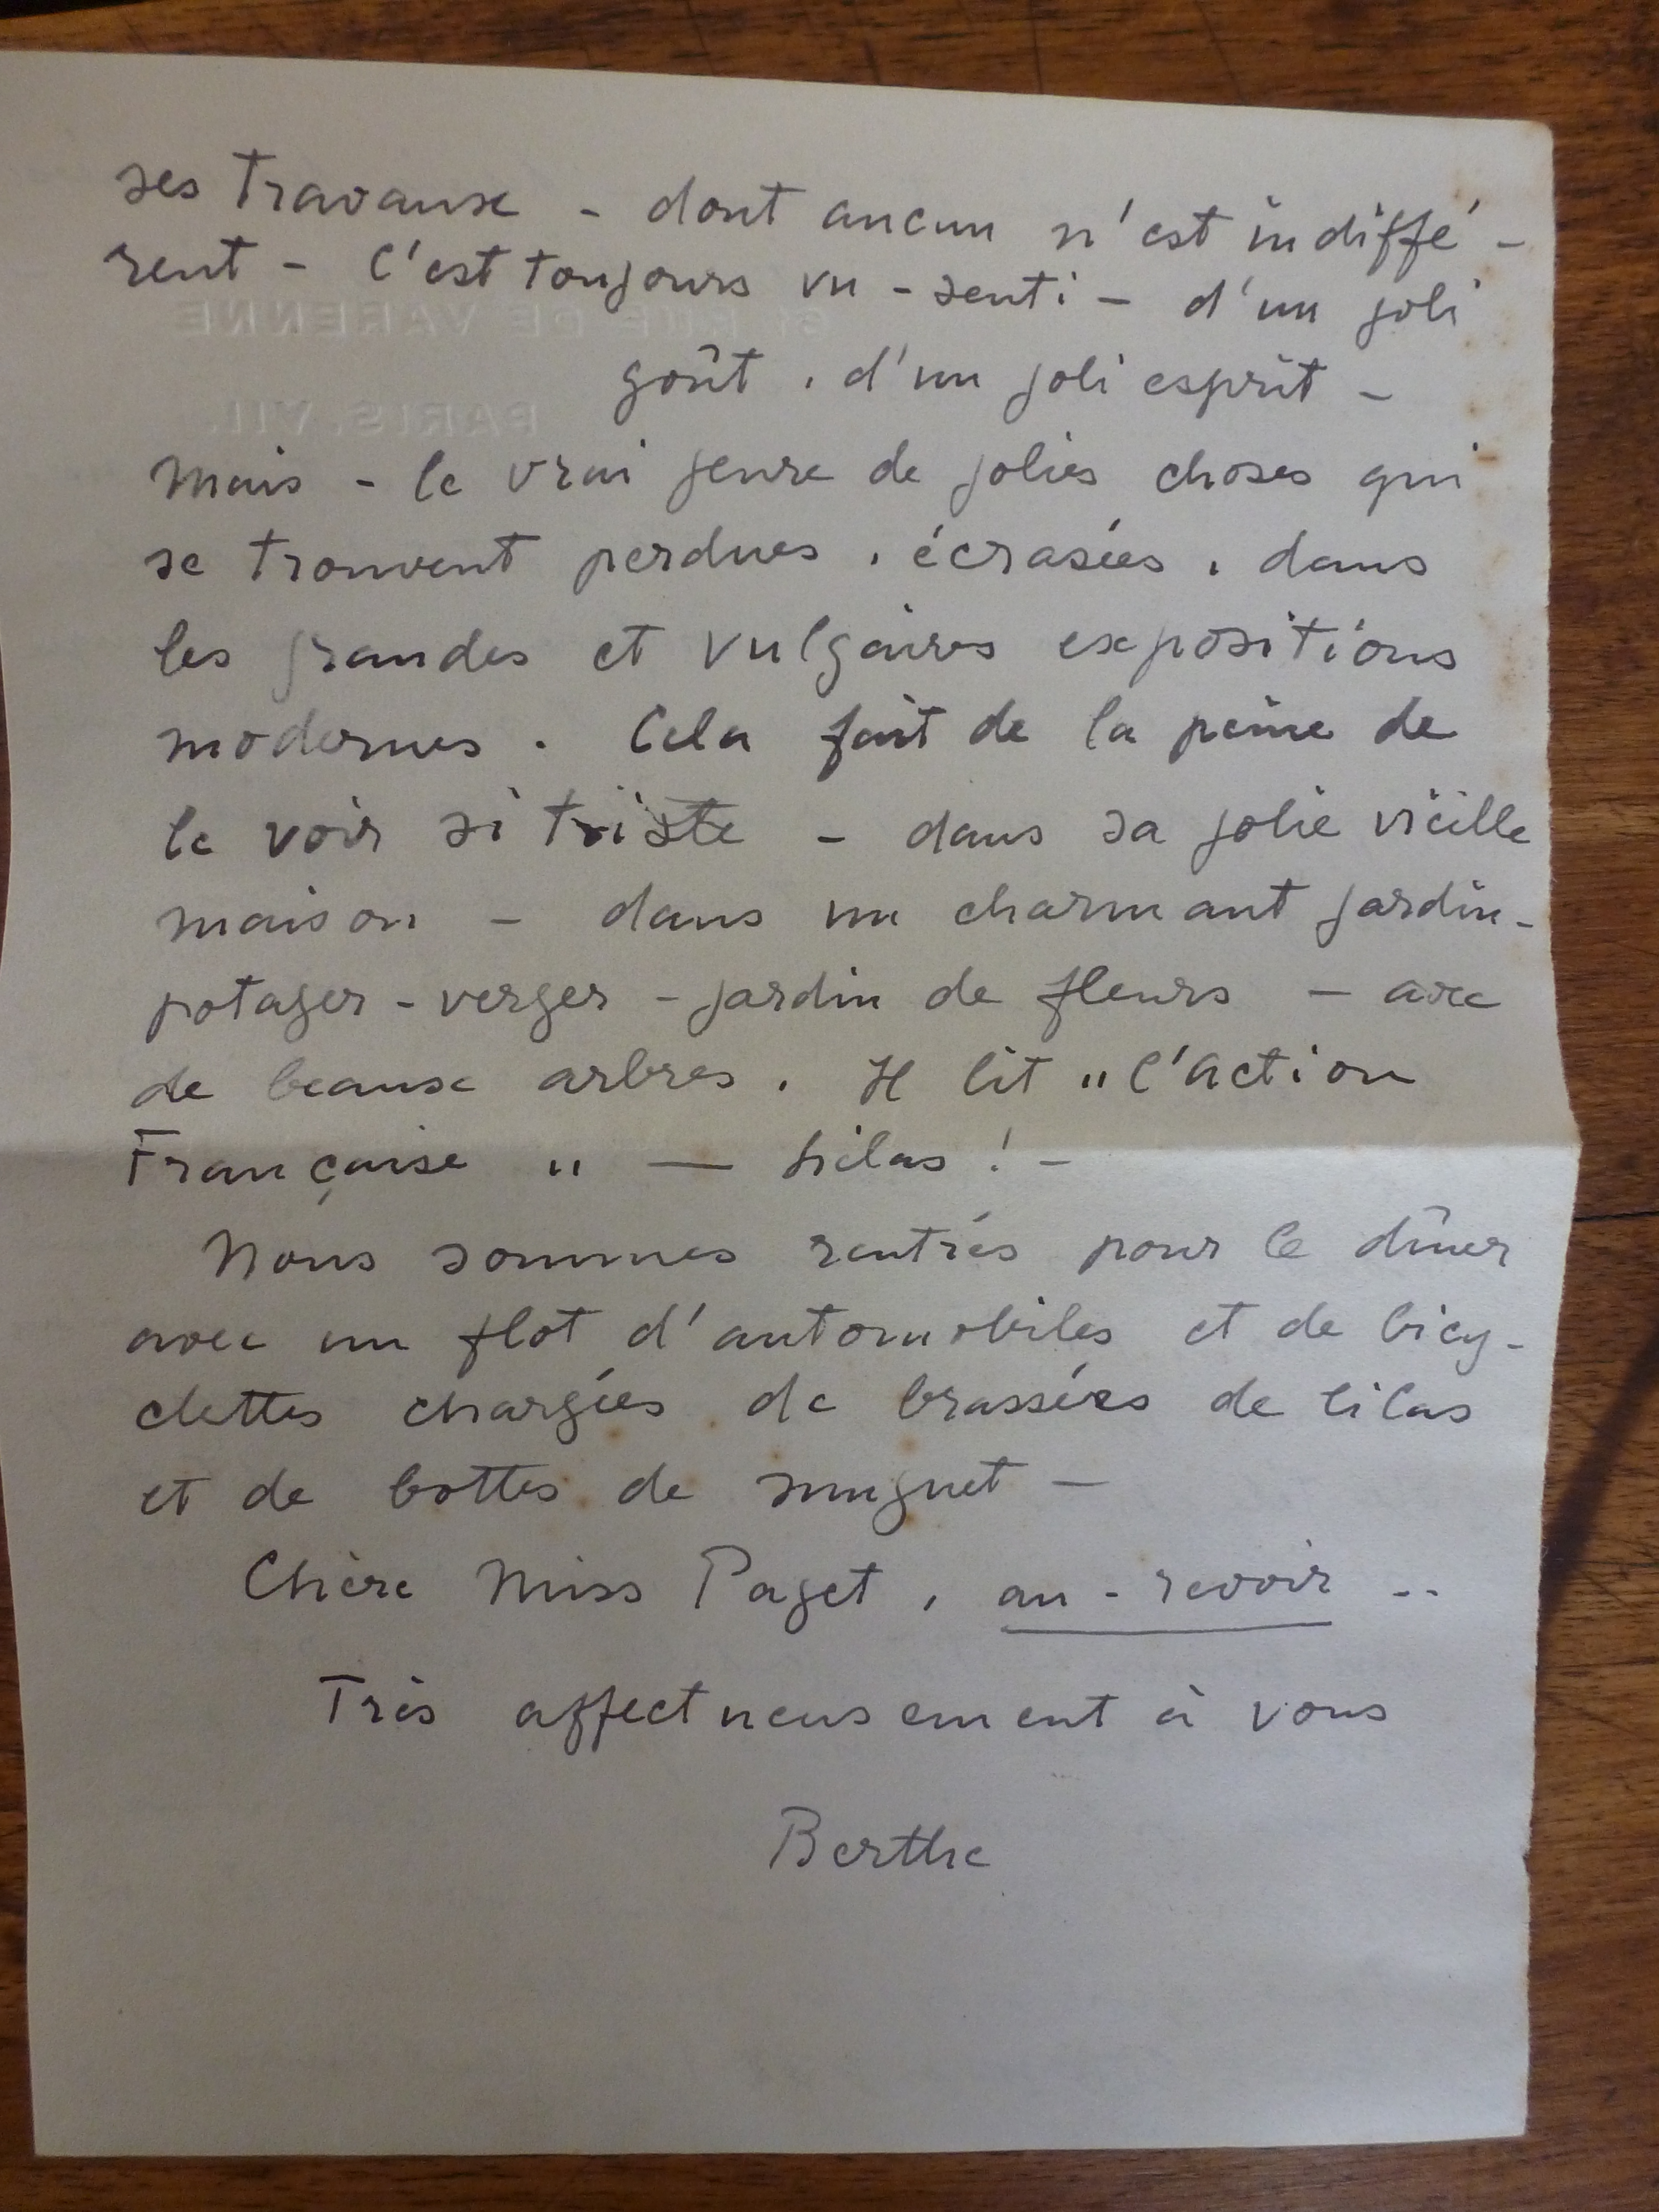 ses travaux - dont aucun n'est indiffé-
rent - C'est toujours vu - senti - d'un joli
goût, d'un joli esprit -
Mais - le vrai genre de jolies choses qui
se trouvent perdues, écrasées, dans
les grandes et vulgaires expositions
modernes. Cela fait de la peine de
le voir si triste - dans sa jolie vieille
maison - dans un charmant jardin-
potager - verger - jardin de fleurs - avec
de beaux arbres. Il lit "l'Action
Française" — hélas ! -
Nous sommes rentrés pour le dîner
avec un flot d'automobiles et de bicy-
clettes chargées de brassées de lilas
et de bottes de muguet —
Chère Miss Paget, au-revoir ..
Très affectueusement à vous
Berthe
RUE DE VARENNE
PARIS. VII.